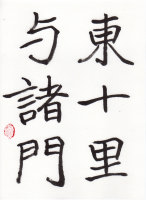 東十里
与諸門